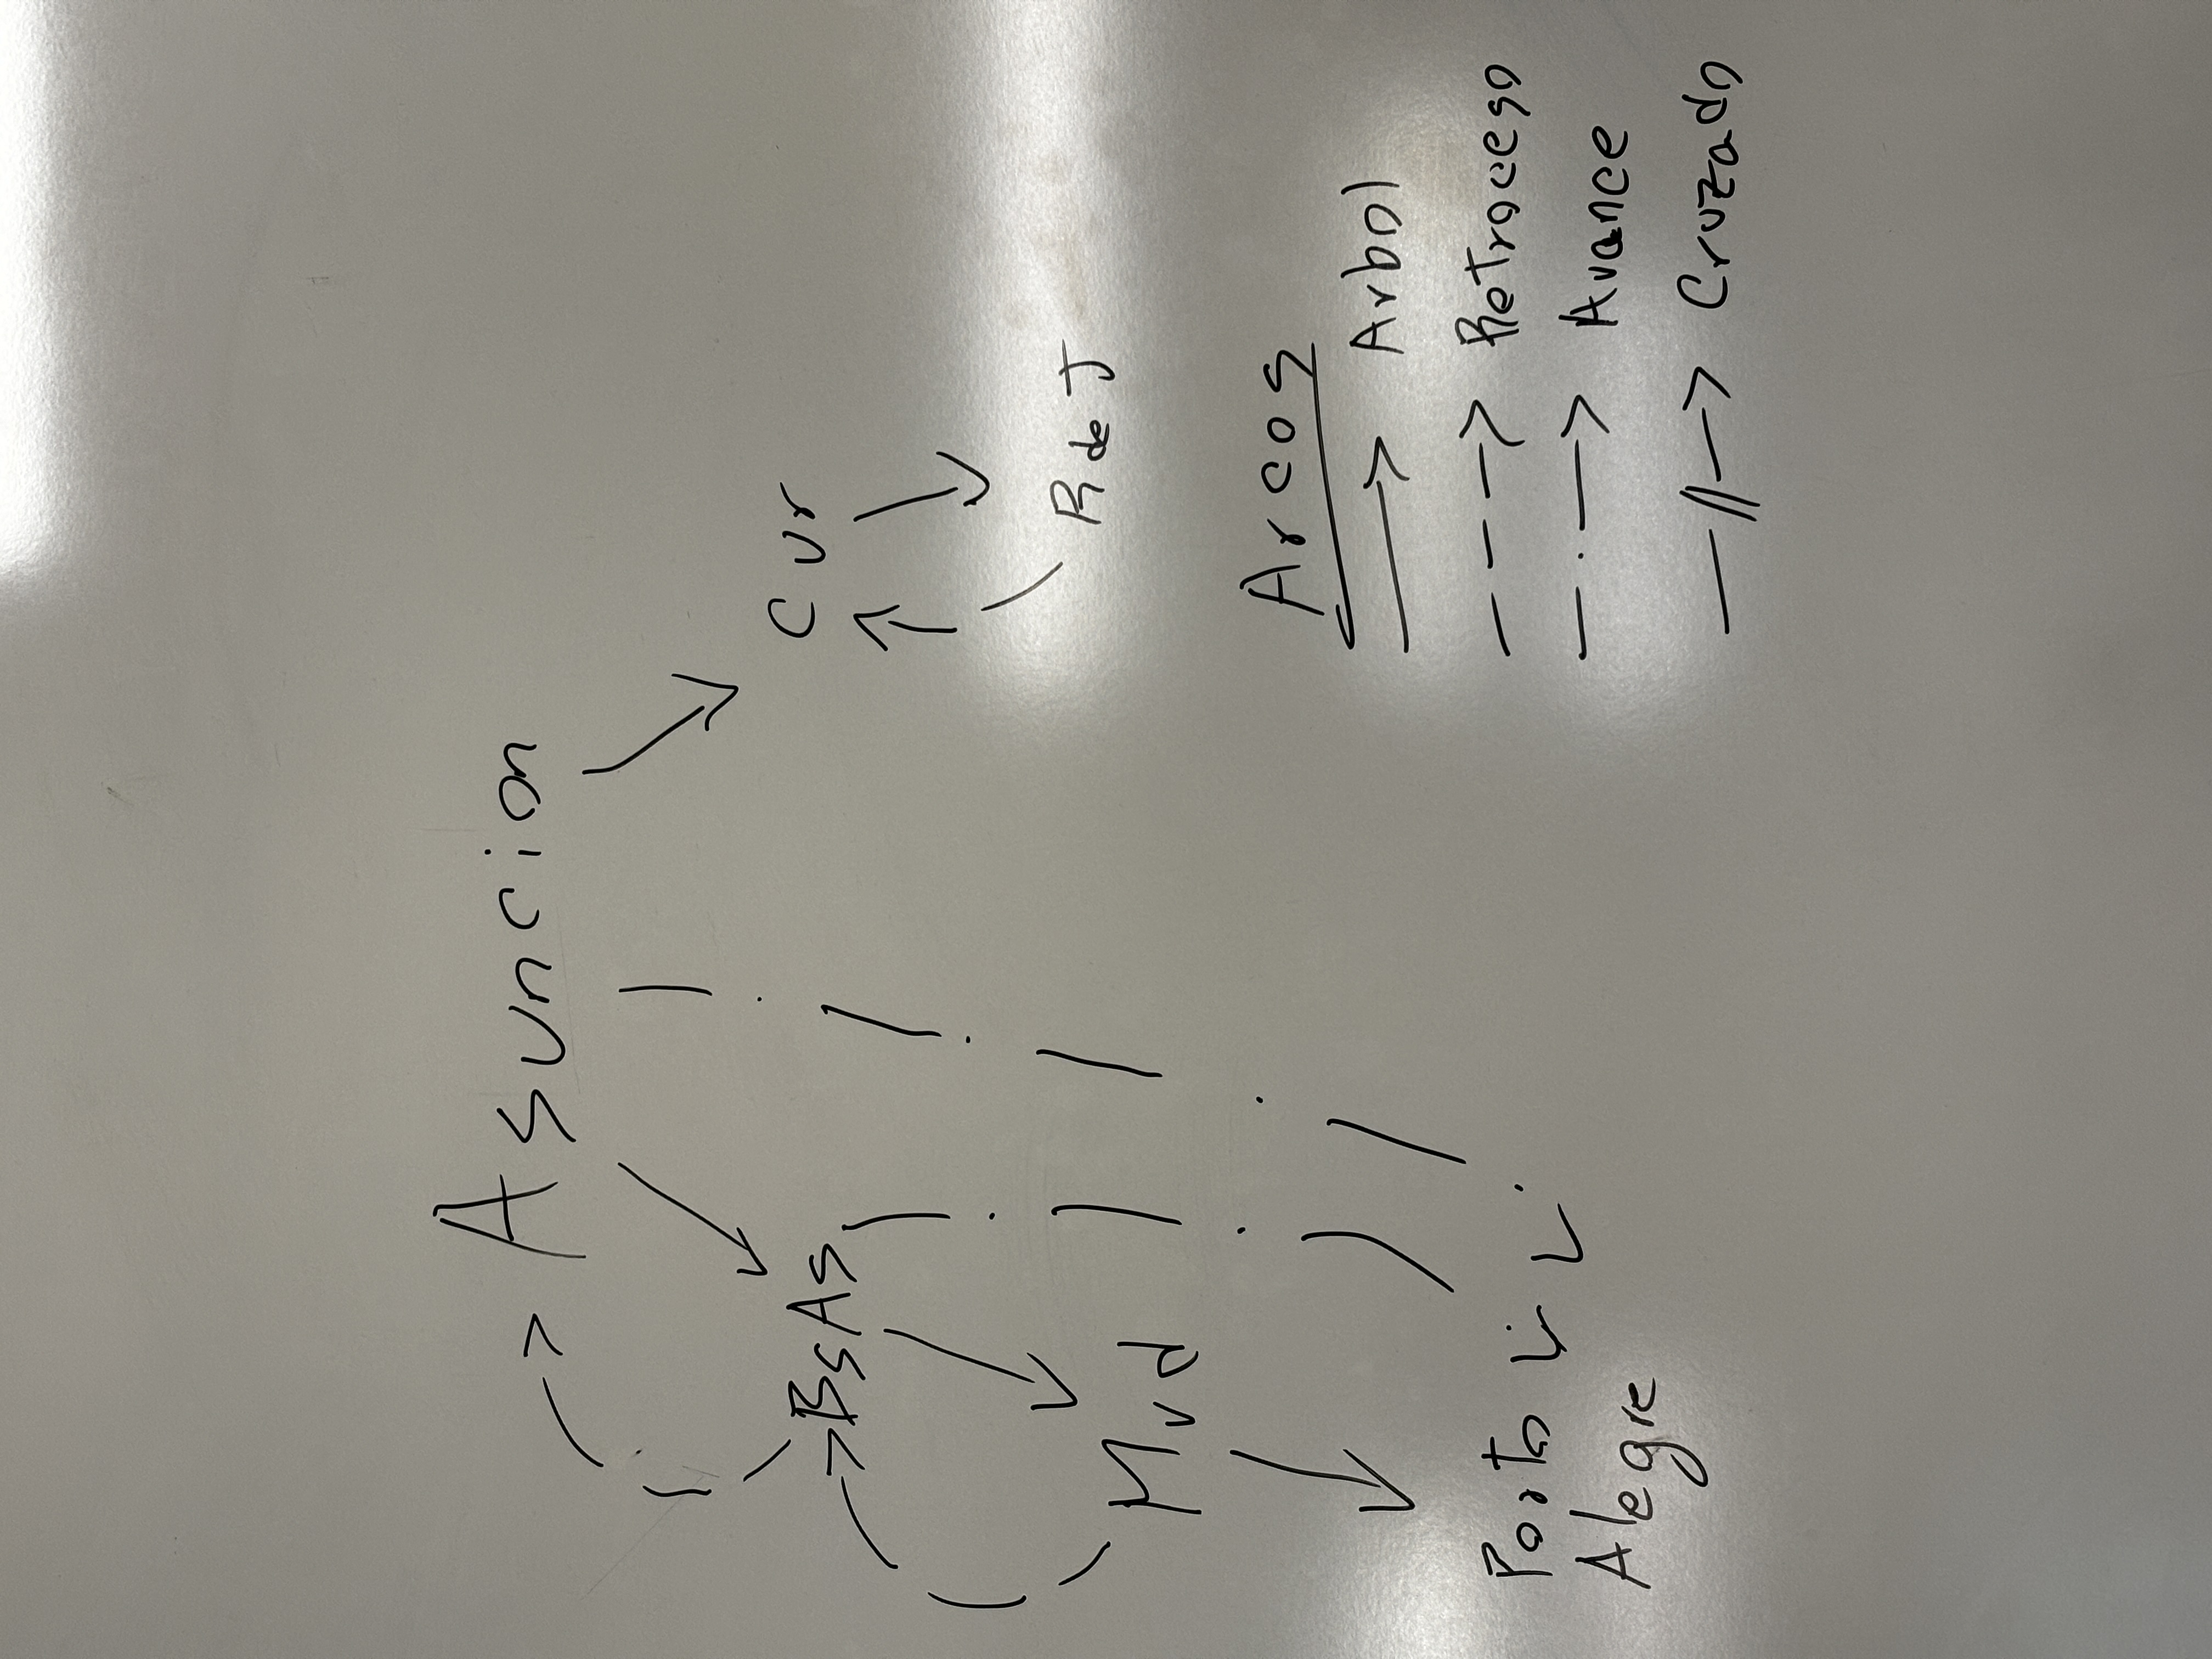 Asuncion
BsAs
Cur
Mvd
R de J
Porto
Alegre
Arcos
Arbol
Retroceso
Avance
Cruzado